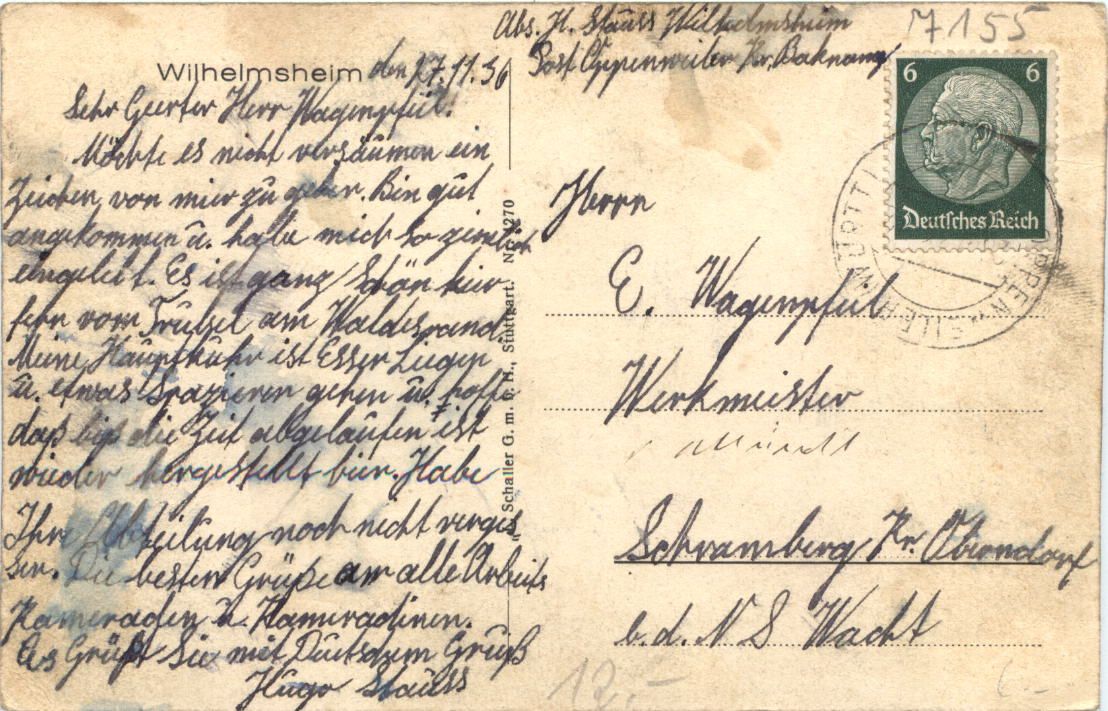 Abs. H. Stauss Wilhelmsheim
Post Oppenweiler Kr. Baknang
7155
Wilhelmsheim den 17.11.36
Sehr Geerter Herr Wagenpfeil!
Möchte es nicht versäumen ein
Zeichen von mir zu geben. Bin gut
angekommen u. habe mich so zimlich
eingelebt. Es ist ganz schön hier
fern vom Trubel am Waldesrand.
Meine Hauptkuhr ist Esser Liegen
u. etwas Spazieren gehen u. hoffe
daß biß die Zeit abgelaufen ist
wieder hergestellt bin. Habe
Ihre Abteilung noch nicht verges
sen. Die besten Grüße am alle Arbeits
Kameraden u. Kameradinen.
Es Grüßt Sie mit Deutschem Gruß
Hugo Stauss
Schaller G. m. b. H., Stuttgart.
6 6
Deutsches Reich
Herrn
E. Wagenpfeil
Werkmeister
Schramberg Kr. Oberndorf
b. d. N. S Wacht
12.-